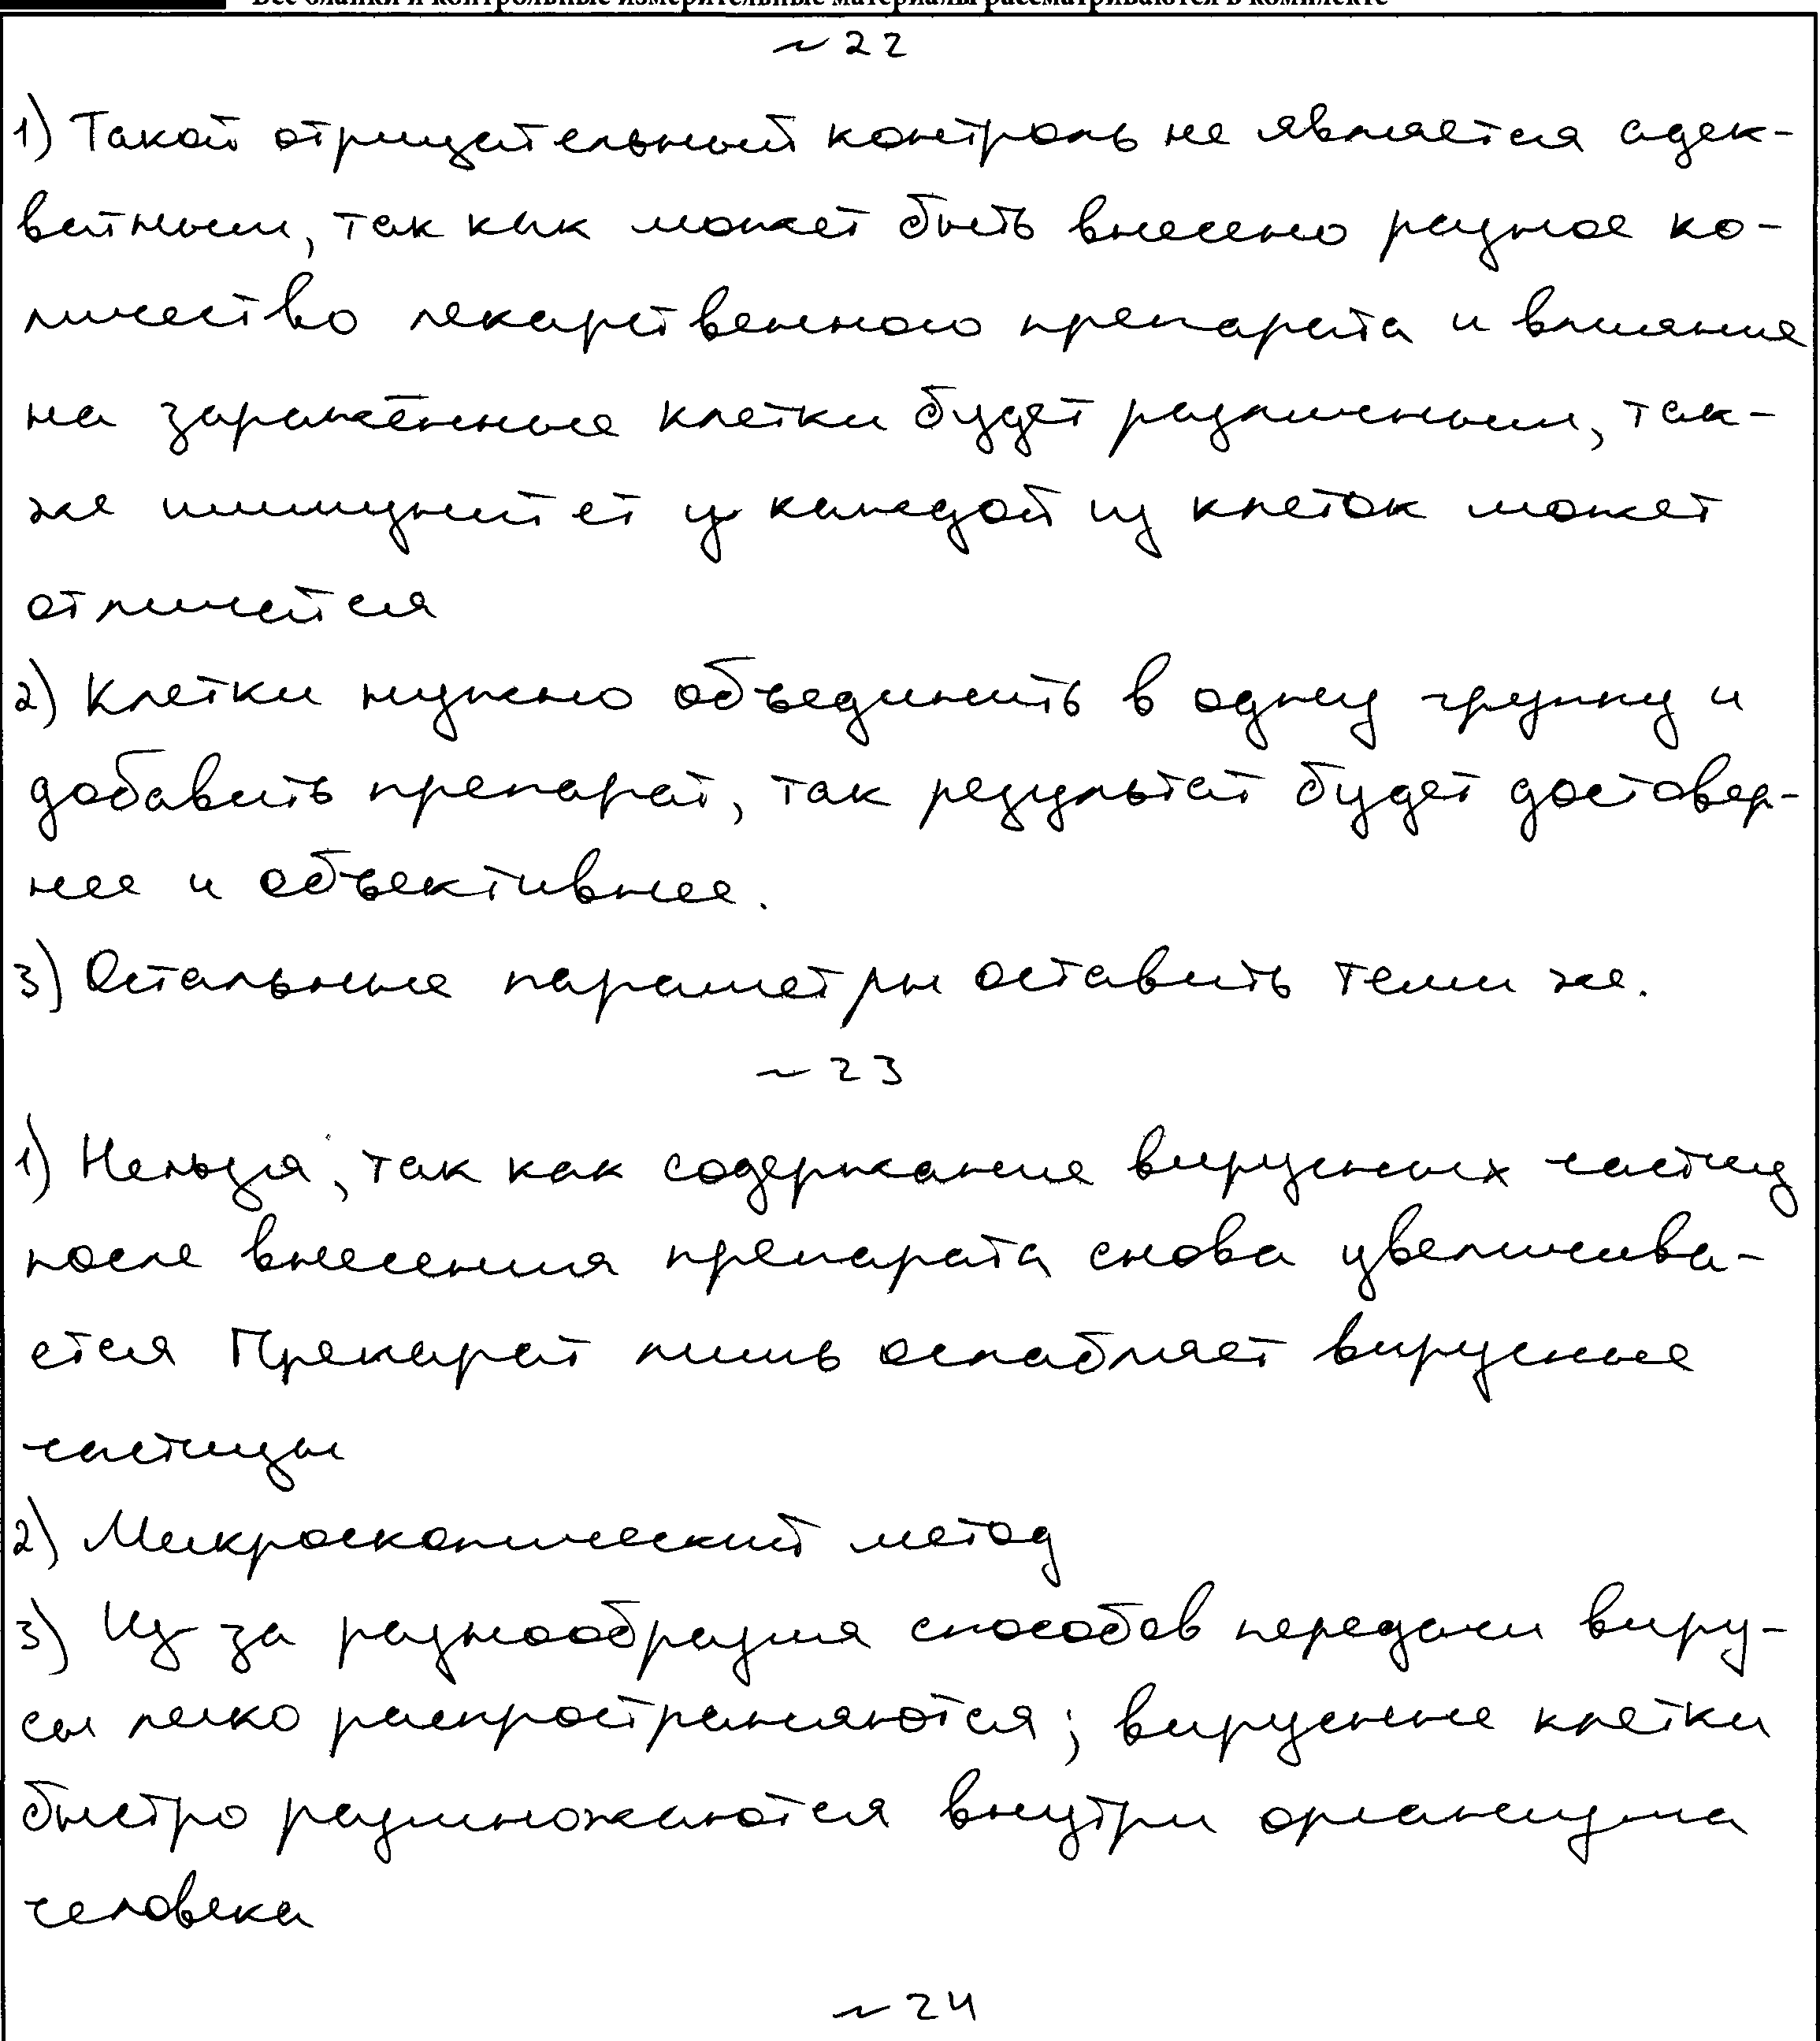 Все бланки и контрольные измерительные материалы рассматриваются в комплекте
~22
1) Такой отрицательный контроль не является адек-
ватным, так как может быть внесено разное ко-
личество лекарственного препарата и влияние
на заражённые клетки будет различным, так-
же иммунитет у каждой из клеток может
отличатся
2) Клетки нужно объединить в одну группу и
добавить препарат, так результат будет достовер-
нее и объективнее.
3) Остальные параметры оставить теми же.
~23
1) Нельзя, так как содержание вирусных частиц
после внесения препарата снова увеличива-
ется Препарат лишь ослабляет вирусные
частицы
2) Микроскопический метод
3) Из за разнообразия способов передачи виру-
сы легко распространяются; вирусные клетки
быстро размножаются внутри организма
человека
~24